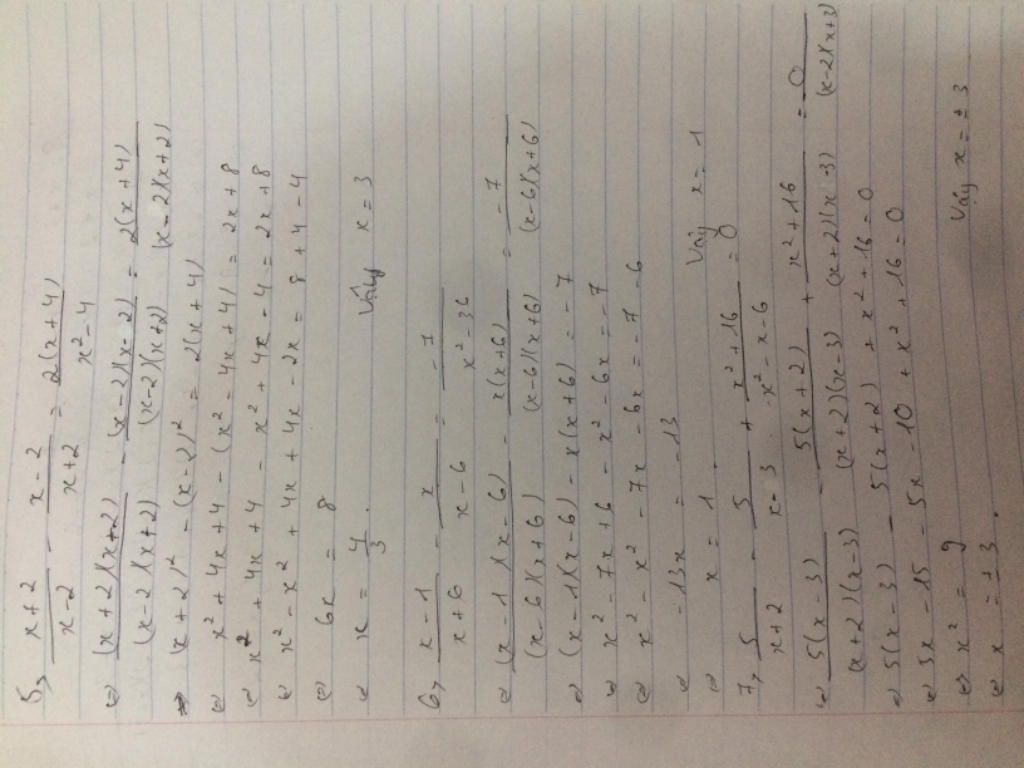 5, (x+2)/(x-2) - (x-2)/(x+2) = 2(x+4)/(x²-4)
⇔ (x+2)(x+2)/(x-2)(x+2) - (x-2)(x-2)/(x-2)(x+2) = 2(x+4)/(x-2)(x+2)
⇒ (x+2)² - (x-2)² = 2(x+4)
⇔ x²+4x+4 - (x²-4x+4) = 2x+8
⇔ x²+4x+4 - x²+4x-4 = 2x+8
⇔ x²-x²+4x+4x-2x = 8+4-4
⇔ 6x = 8
⇔ x = 4/3. Vậy x = 3
6, (x-1)/(x+6) - x/(x-6) = -7/(x²-36)
⇔ (x-1)(x-6)/(x-6)(x+6) - x(x+6)/(x-6)(x+6) = -7/(x-6)(x+6)
⇔ (x-1)(x-6) - x(x+6) = -7
⇔ x²-7x+6 - x²-6x = -7
⇔ x² - x² - 7x - 6x = -7 - 6
⇔ -13x = -13
⇔ x = 1. Vậy x = 1
7, 5/(x+2) - 5/(x-3) + (x²+16)/(x²-x-6) = 0
⇔ 5(x-3)/(x+2)(x-3) - 5(x+2)/(x+2)(x-3) + (x²+16)/(x+2)(x-3) = 0/(x-2)(x+3)
⇔ 5(x-3) - 5(x+2) + x²+16 = 0
⇔ 5x-15 - 5x-10 + x²+16 = 0
⇔ x² = 9
⇔ x = ±3. Vậy x = ±3